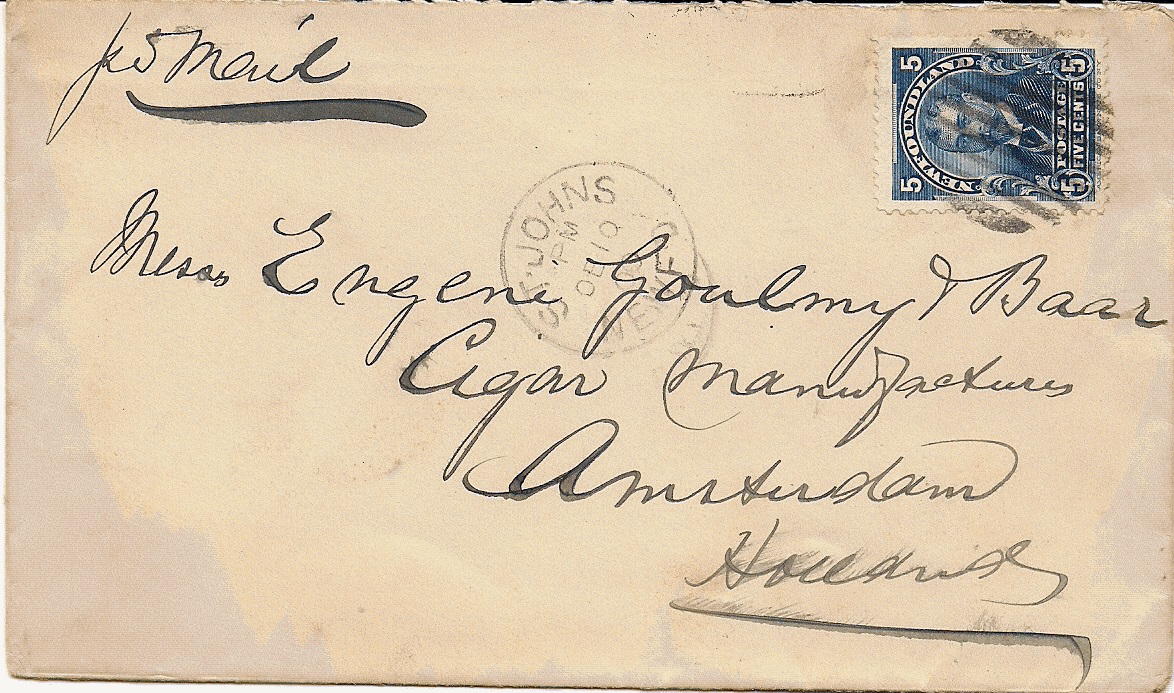 pr Mail
5
NEWFOUNDLAND
5
POSTAGE
FIVE CENTS
5
5
ST. JOHNS
PM
DE 10
NEWF'D
Messrs Eugene Goulmy & Baar
Cigar Manufacturers
Amsterdam
Holland